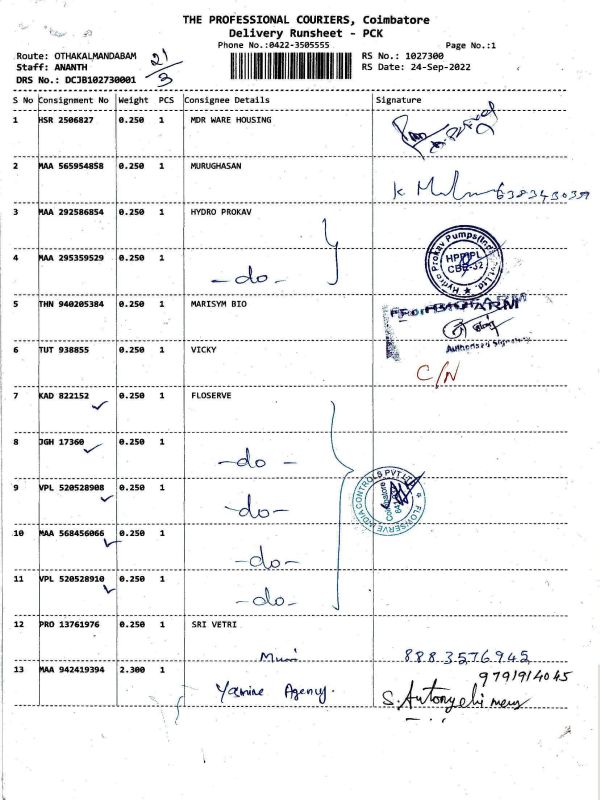 THE PROFESSIONAL COURIERS, Coimbatore
Delivery Runsheet - PCK
Phone No.:0422-3505555
Page No.:1
Route: OTHAKALMANDABAM
RS No.: 1027300
Staff: ANANTH
RS Date: 24-Sep-2022
DRS No.: DCJB102730001
21/3
S No Consignment No Weight PCS Consignee Details Signature
1 HSR 2506827 0.250 1 MDR WARE HOUSING
2 MAA 565954858 0.250 1 MURUGHASAN
6383430339
3 MAA 292586854 0.250 1 HYDRO PROKAV
Hydro Prokav Pumps(Ind) Pvt Ltd.
HPPIPL
CBE-32
4 MAA 295359529 0.250 1
-do-
5 THN 940205384 0.250 1 MARISYM BIO
Authorised Signatory
6 TUT 938855 0.250 1 VICKY
C/N
7 KAD 822152 0.250 1 FLOSERVE
8 JGH 17360 0.250 1
-do-
9 VPL 520528908 0.250 1
-do-
FLOWSERVE INDIA CONTROLS PVT LTD
Coimbatore
10 MAA 568456066 0.250 1
-do-
11 VPL 520528910 0.250 1
-do-
12 PRO 13761976 0.250 1 SRI VETRI
8883576945
13 MAA 942419394 2.300 1
9791914045
Agency.